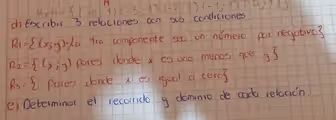 d) Escribir 3 relaciones con sus condiciones.
R₁={(x,y)/la 1ra componente es un número par negativo}
R₂={(x,y) pares donde x es uno menos que y}
R₃={ pares donde x es igual a cero}
e) Determinar el recorrido y dominio de cada relación.